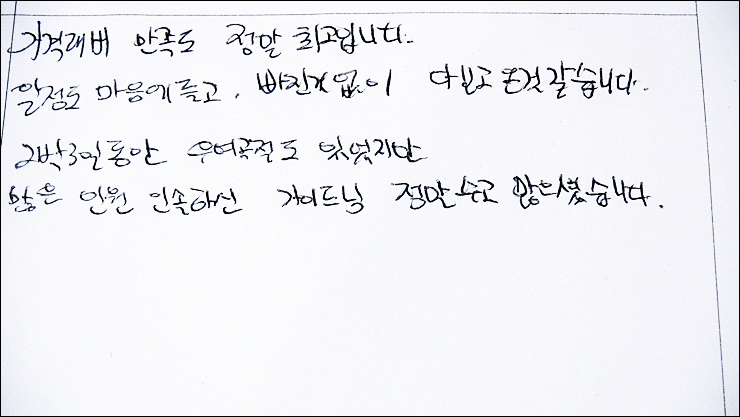 가격대비 만족도 정말 최고입니다.
일정도 마음에들고, 빠진거 없이 다보고 온것 같습니다.
2박3일동안 우여곡적도 있었지만
많은 인원 인솔하신 가이드님 정말 수고 많으셨습니다.